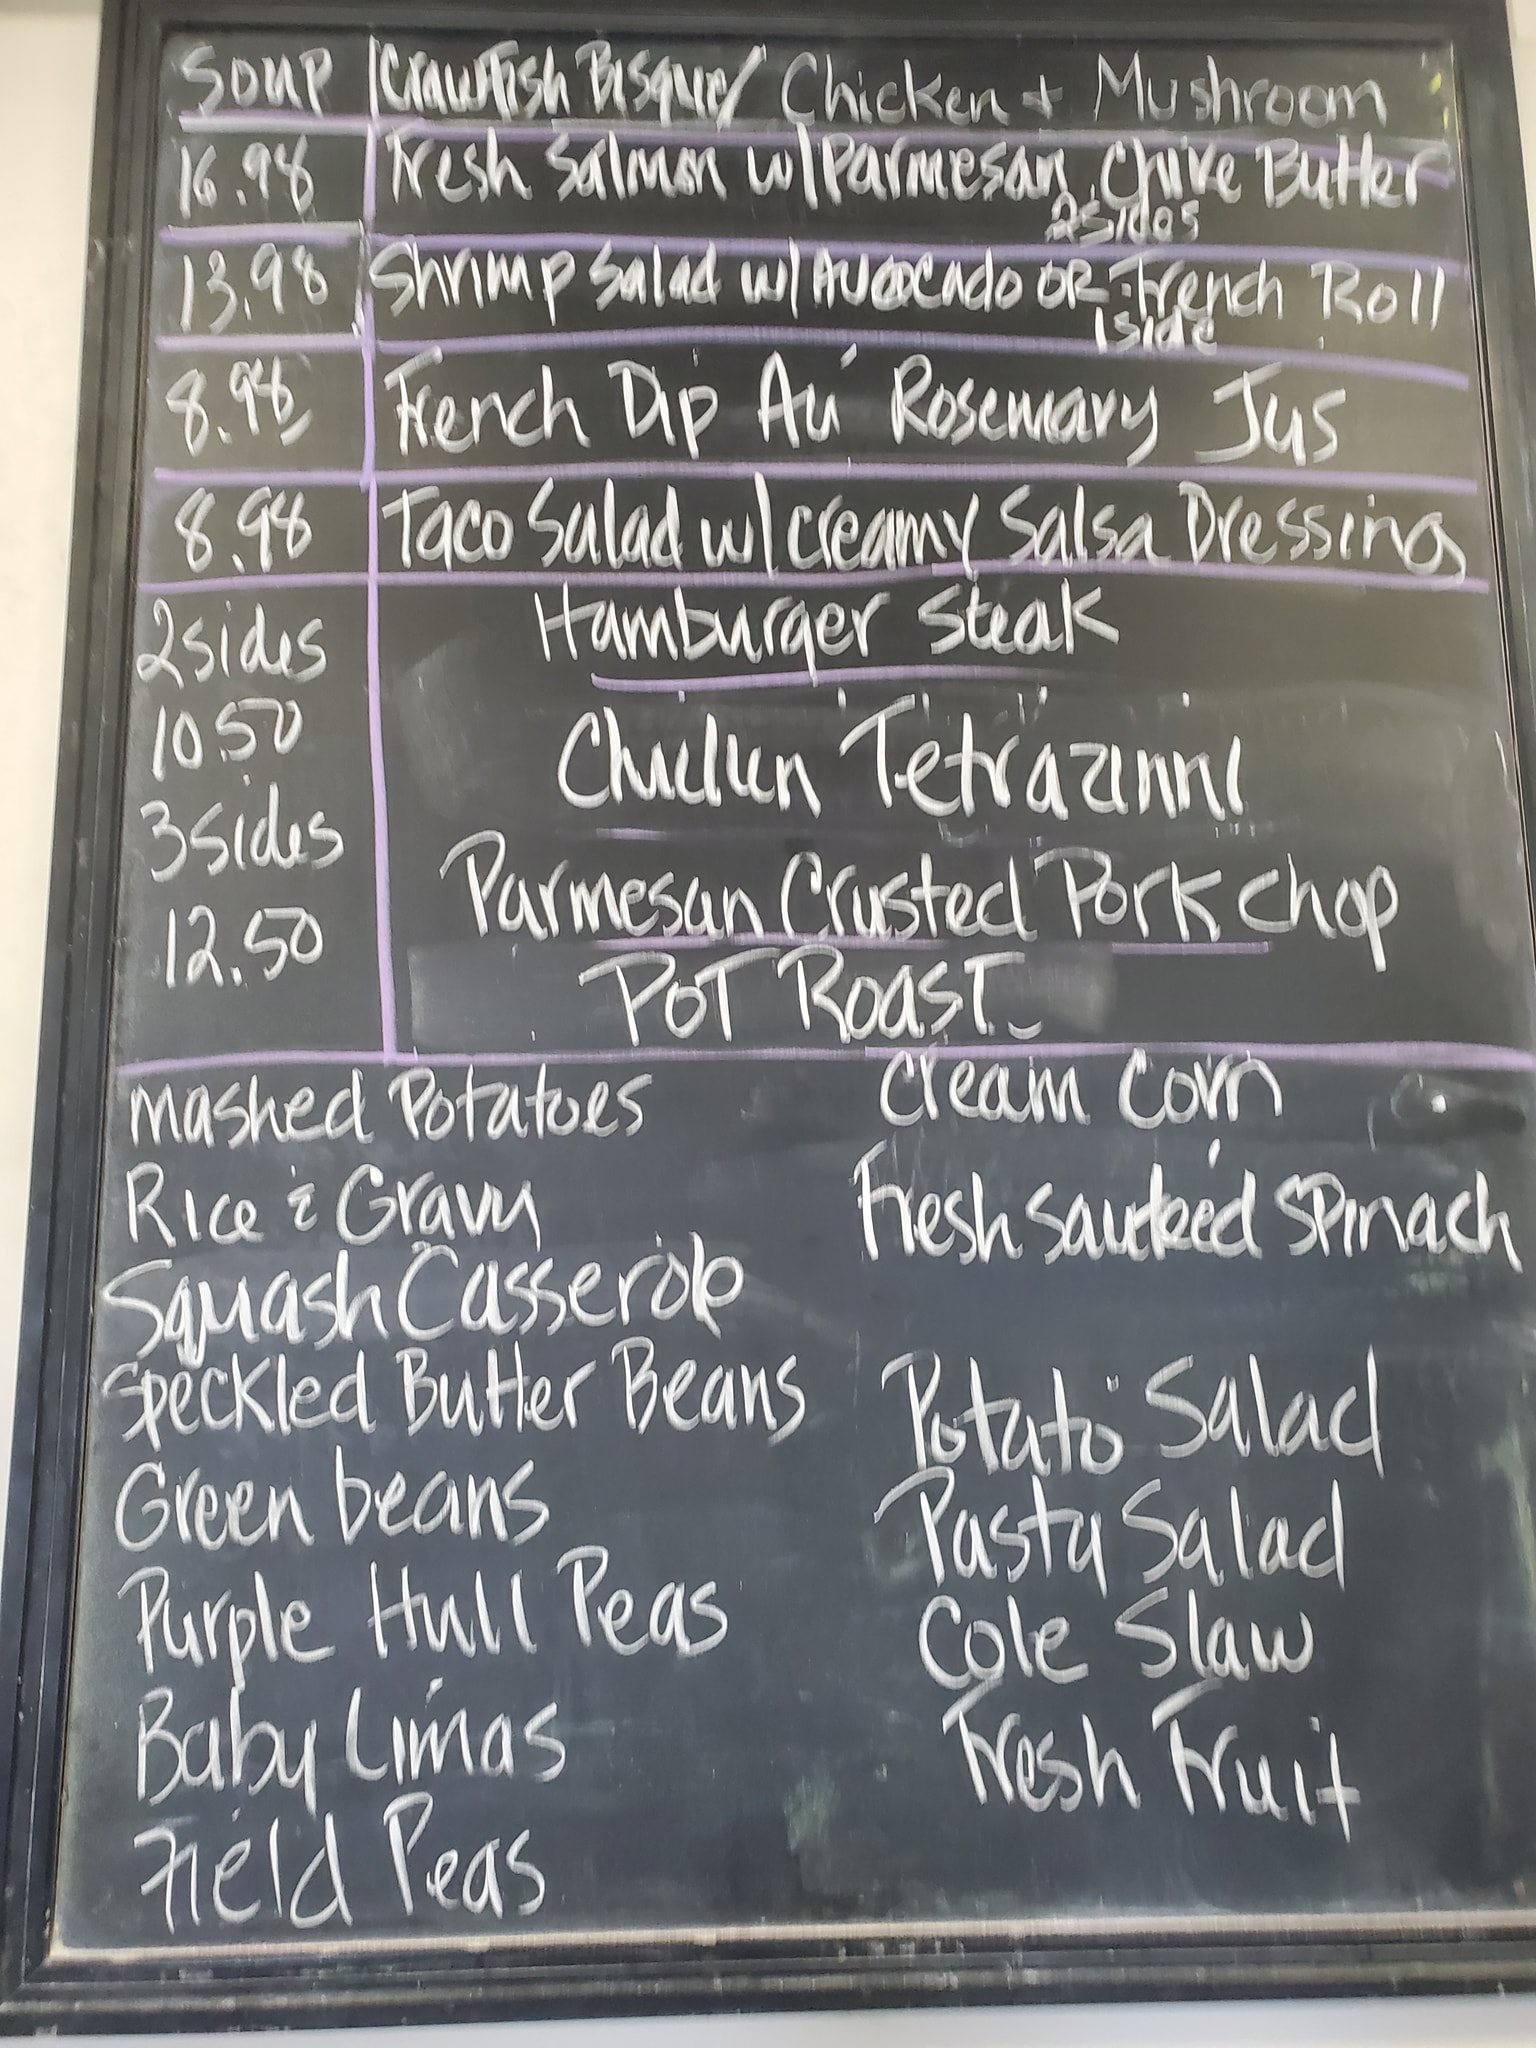 Soup Crawfish Bisque/ Chicken + Mushroom
16.98 Fresh Salmon w/Parmesan Chive Butter
2sides
13.98 Shrimp Salad w/Avocado OR French Roll
1side
8.98 French Dip Au Rosemary Jus
8.98 Taco Salad w/creamy Salsa Dressing
2sides Hamburger Steak
10.50 Chicken Tetrazinni
3sides Parmesan Crusted Pork chop
12.50 POT ROAST
Mashed Potatoes
Rice & Gravy
Squash Casserole
Speckled Butter Beans
Green beans
Purple Hull Peas
Baby Limas
Field Peas
Cream Corn
Fresh Sauteed Spinach
Potato Salad
Pasta Salad
Cole Slaw
Fresh Fruit